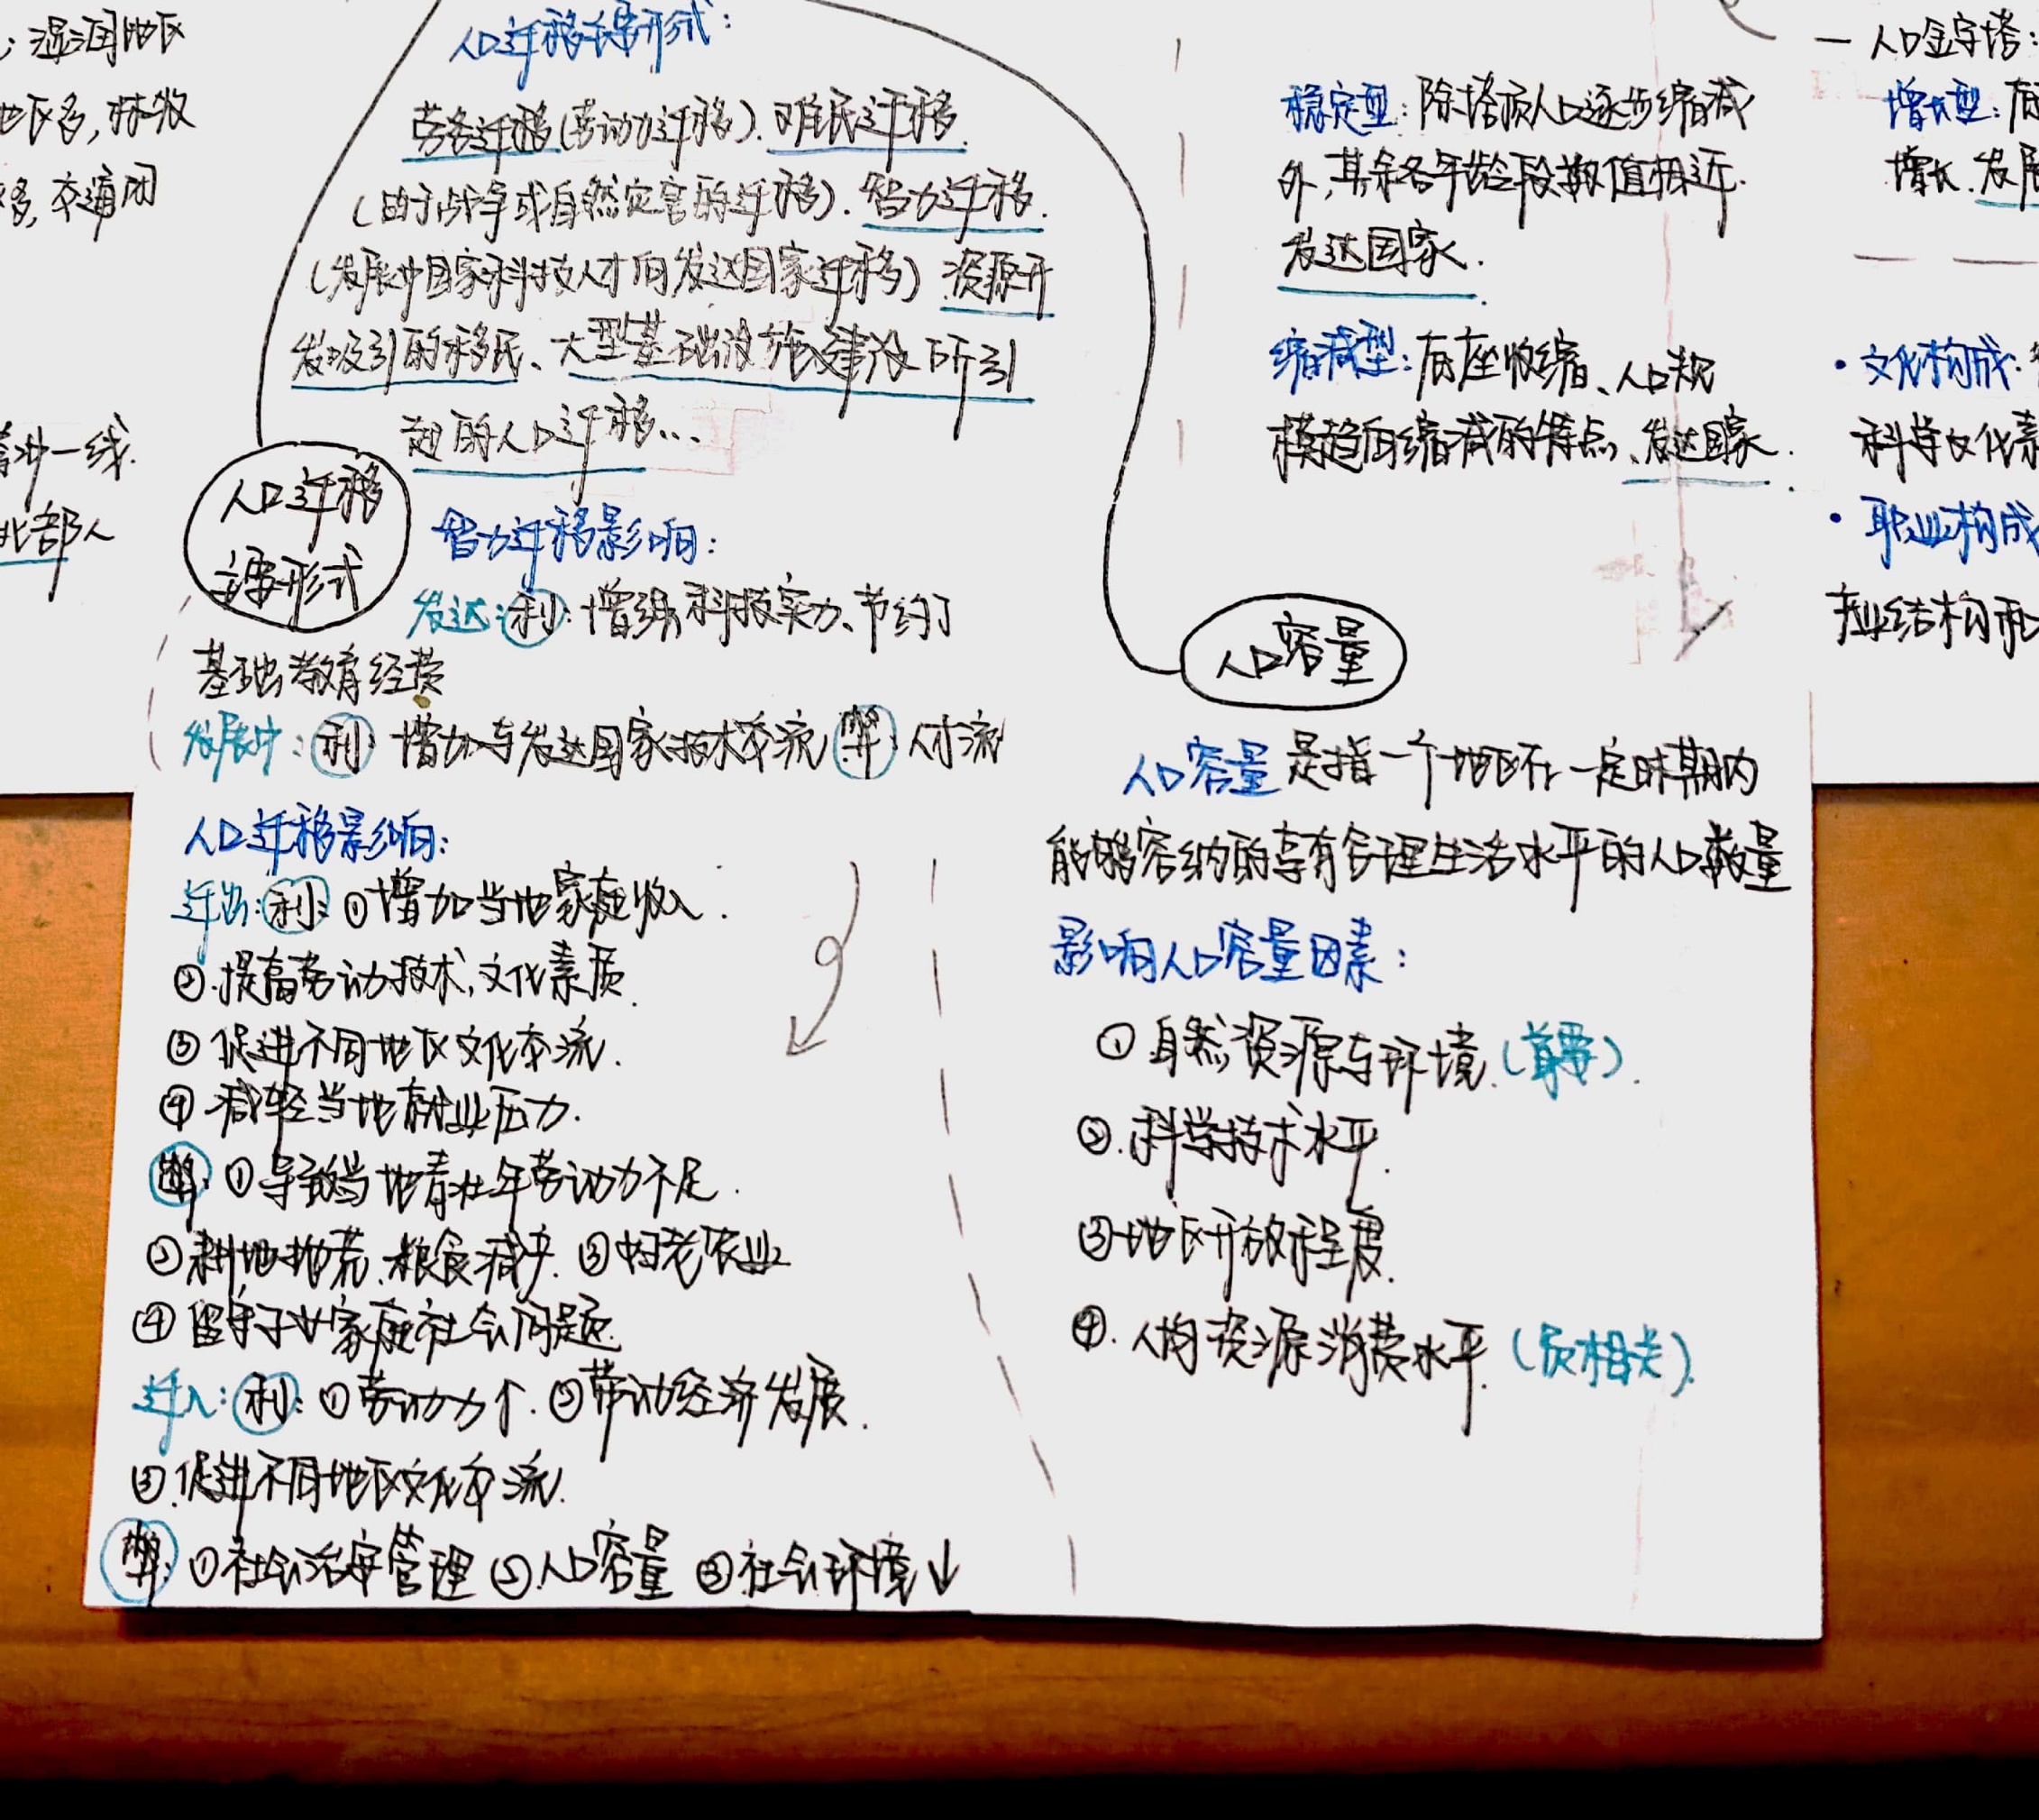 ：湿润地区
地区多，林牧
多，交通闭
一线.
北部人
人口迁移主要形式：
劳务迁移(劳动力迁移).难民迁移.
(由于战争或自然灾害的迁移).智力迁移.
(发展中国家科技人才向发达国家迁移) 资源开
发吸引的移民、大型基础设施建设所引
起的人口迁移...
人口迁移
主要形式
智力迁移影响：
发达：利：增强科技实力、节约了
基础教育经费
发展中：利：增加与发达国家技术交流 弊：人才流
人口迁移影响：
迁出：利：①增加当地家庭收入.
②.提高劳动技术，文化素质.
③促进不同地区文化交流.
④.减轻当地就业压力.
弊：①导致当地青壮年劳动力不足.
②耕地抛荒、粮食减产. ③妇老农业
④留守子女家庭社会问题
迁入：利：①劳动力↑. ②带动经济发展.
③.促进不同地区文化交流.
弊：①社会治安管理 ②.人口容量 ③社会环境↓
稳定型：除塔顶人口逐步缩减
外，其余各年龄段数值相近.
发达国家.
缩减型：底座收缩、人口规
模趋向缩减的特点、发达国家.
人口容量
人口容量是指一个地区在一定时期内
能够容纳的享有合理生活水平的人口数量
影响人口容量因素：
①自然资源与环境.(首要).
②.科学技术水平.
③地区开放程度.
④.人均资源消费水平.(负相关).
一 人口金字塔：
增长型：底
增长.发展
·文化构成：
科学文化素
·职业构成
产业结构而